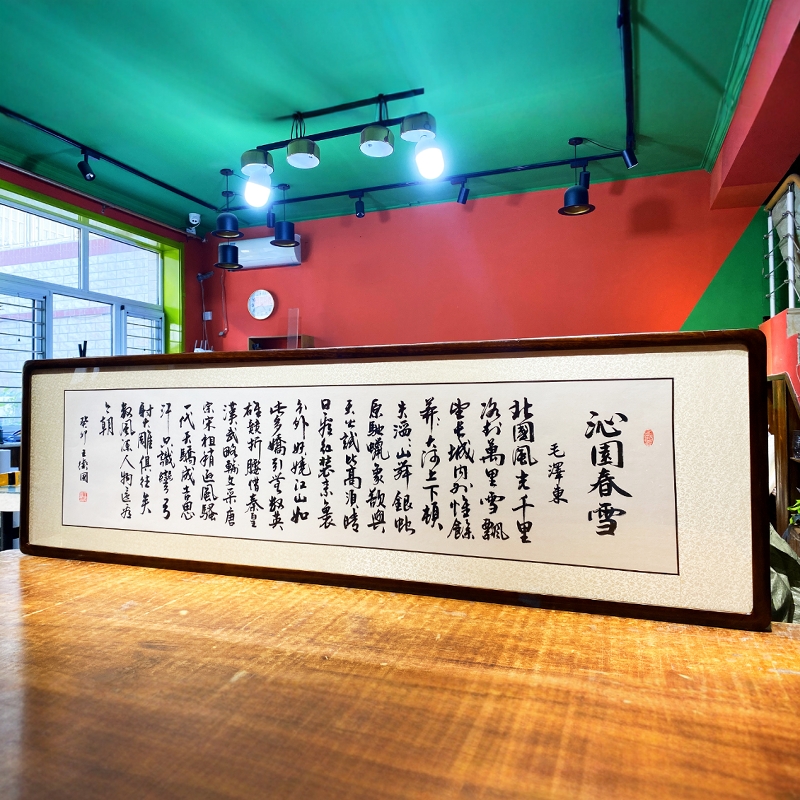 沁園春雪
毛澤東
北國風光千里
冰封萬里雪飄
望長城内外惟餘
莽々大河上下頓
失滔々山舞銀蛇
原馳蠟象欲與
天公試比高須晴
日看紅裝素裹
分外妖嬈江山如
此多嬌引無數英
雄競折腰惜秦皇
漢武略輸文采唐
宗宋祖稍遜風騷
一代天驕成吉思
汗只識彎弓
射大雕俱往矣
數風流人物還看
今朝
癸卯王衛國